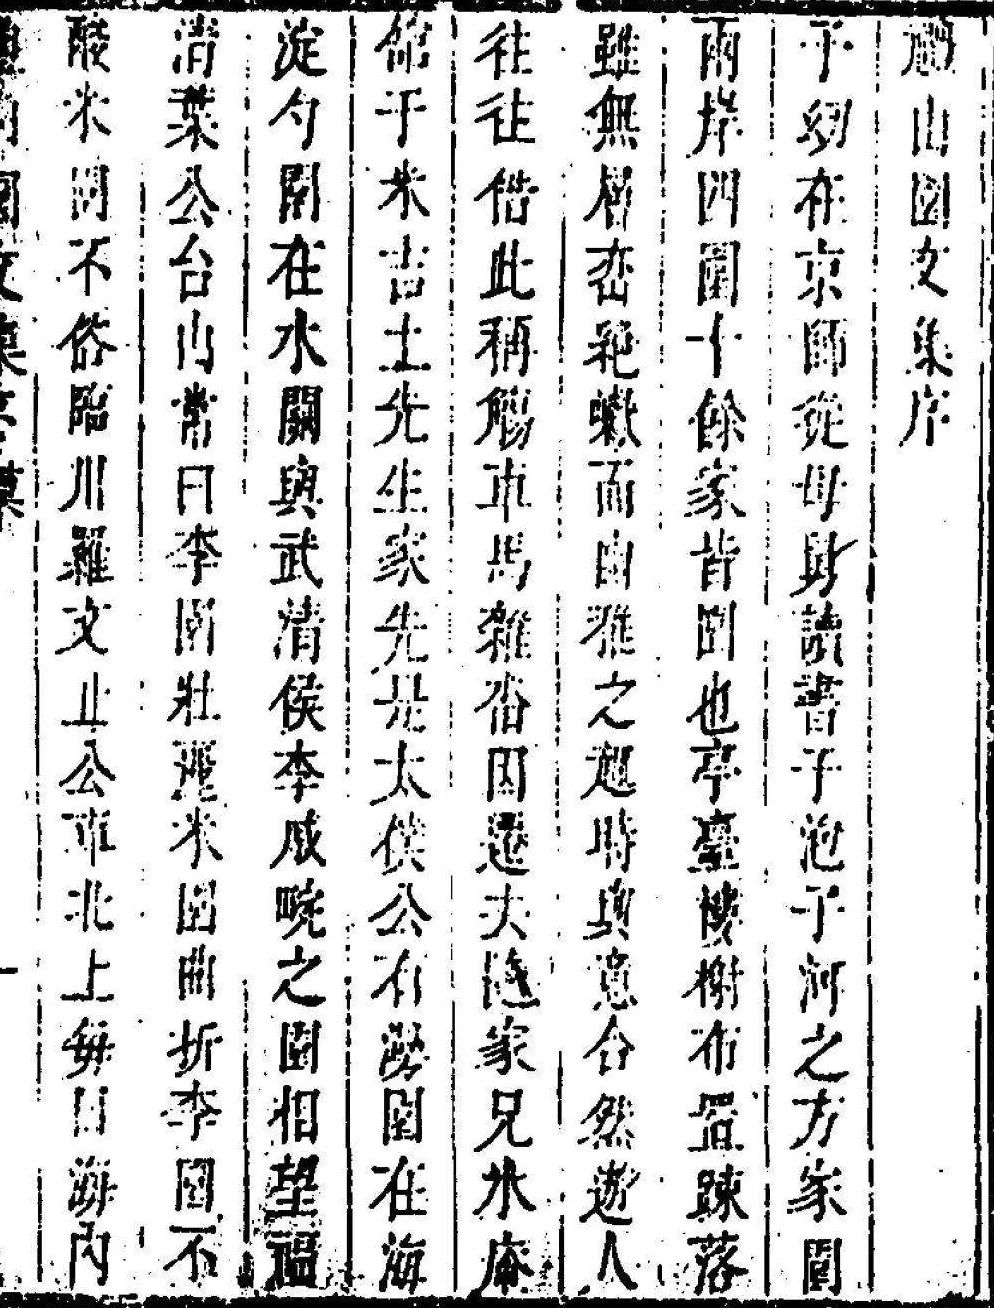 山園文集序
予幼在京師從母舅讀書于泡子河之方家園
兩岸四圍十餘家皆園也亭臺樓榭布置踈落
雖無層巒絕巘而幽雅之趣時與意合然遊人
往往借此稱觴車馬雜沓因遷夫隨家兄氷庵
館于米吉土先生家先是太僕公有湛園在海
淀勺園在水關與武清侯李戚畹之園相望福
清葉公台山常曰李園壯麗米園曲折李園不
酸米園不俗臨川羅文止公車北上每日海內